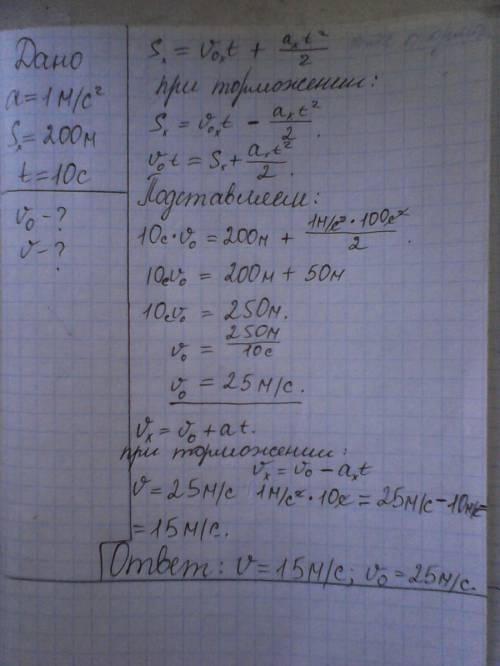 Дано
a = 1 м/с²
Sₓ = 200м
t = 10с
v₀ - ?
v - ?
Sₓ = v₀ₓt + aₓt²/2
при торможении:
Sₓ = v₀ₓt - aₓt²/2.
v₀t = Sₓ + aₓt²/2.
Подставляем:
10с·v₀ = 200м + 1м/с²·100с²/2.
10сv₀ = 200м + 50м
10сv₀ = 250м.
v₀ = 250м/10с
v₀ = 25м/с.
vₓ = v₀ + at.
при торможении:
vₓ = v₀ - aₓt
v = 25м/с 1м/с²·10с = 25м/с - 10м/с
= 15м/с.
Ответ: v = 15м/с; v₀ = 25м/с.